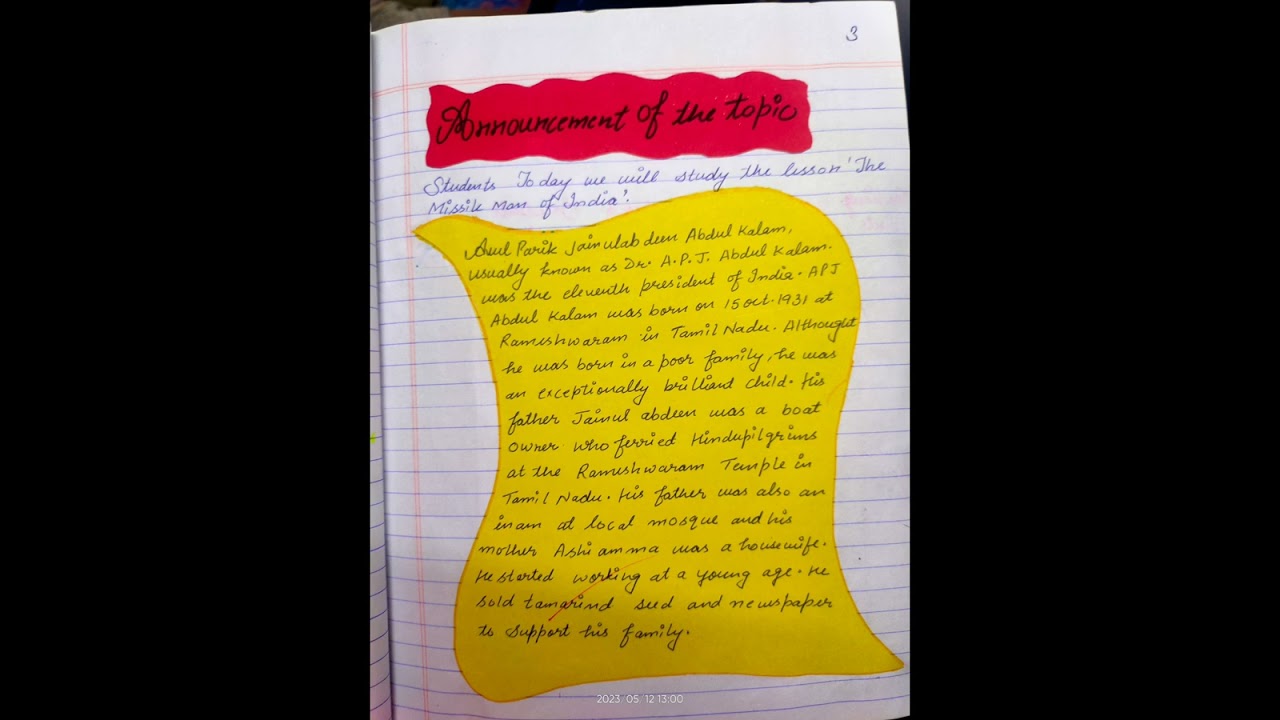 3
Announcement of the topic
Students Today we will study the lesson 'The
Missile Man of India'.
Avul Parik Jainulab deen Abdul Kalam,
usually known as Dr. A.P.J. Abdul Kalam.
was the eleventh president of India. APJ
Abdul Kalam was born on 15 oct. 1931 at
Rameshwaram in Tamil Nadu. Althought
he was born in a poor family, he was
an exceptionally brilliant child. His
father Jainul abdeen was a boat
owner who ferried Hindupilgrims
at the Rameshwaram Temple in
Tamil Nadu. His father was also an
imam at local mosque and his
mother Ashi amma was a housewife.
He started working at a young age. He
sold tamarind seed and newspaper
to support his family.
2023/05/12 13:00